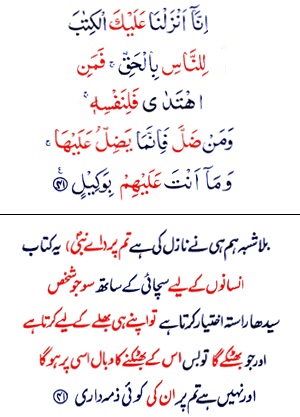 اِنَّآ اَنْزَلْنَا عَلَيْكَ الْكِتٰبَ
لِلنَّاسِ بِالْحَقِّ ۚ فَمَنِ
اهْتَدٰى فَلِنَفْسِهٖ ۚ
وَمَنْ ضَلَّ فَاِنَّمَا يَضِلُّ عَلَيْهَا ۚ
وَمَآ اَنْتَ عَلَيْهِمْ بِوَكِيْلٍ ﴿۴۱﴾
بلاشبہ ہم ہی نے نازل کی ہے تم پر (اے نبیؐ) یہ کتاب
انسانوں کے لیے سچائی کے ساتھ سو جو شخص
سیدھا راستہ اختیار کرتا ہے تو اپنے ہی بھلے کے لیے کرتا ہے
اور جو بھٹکے گا تو بس اس کے بھٹکنے کا وبال اسی پر ہوگا
اور نہیں ہے تم پر ان کی کوئی ذمہ داری ﴿۴۱﴾